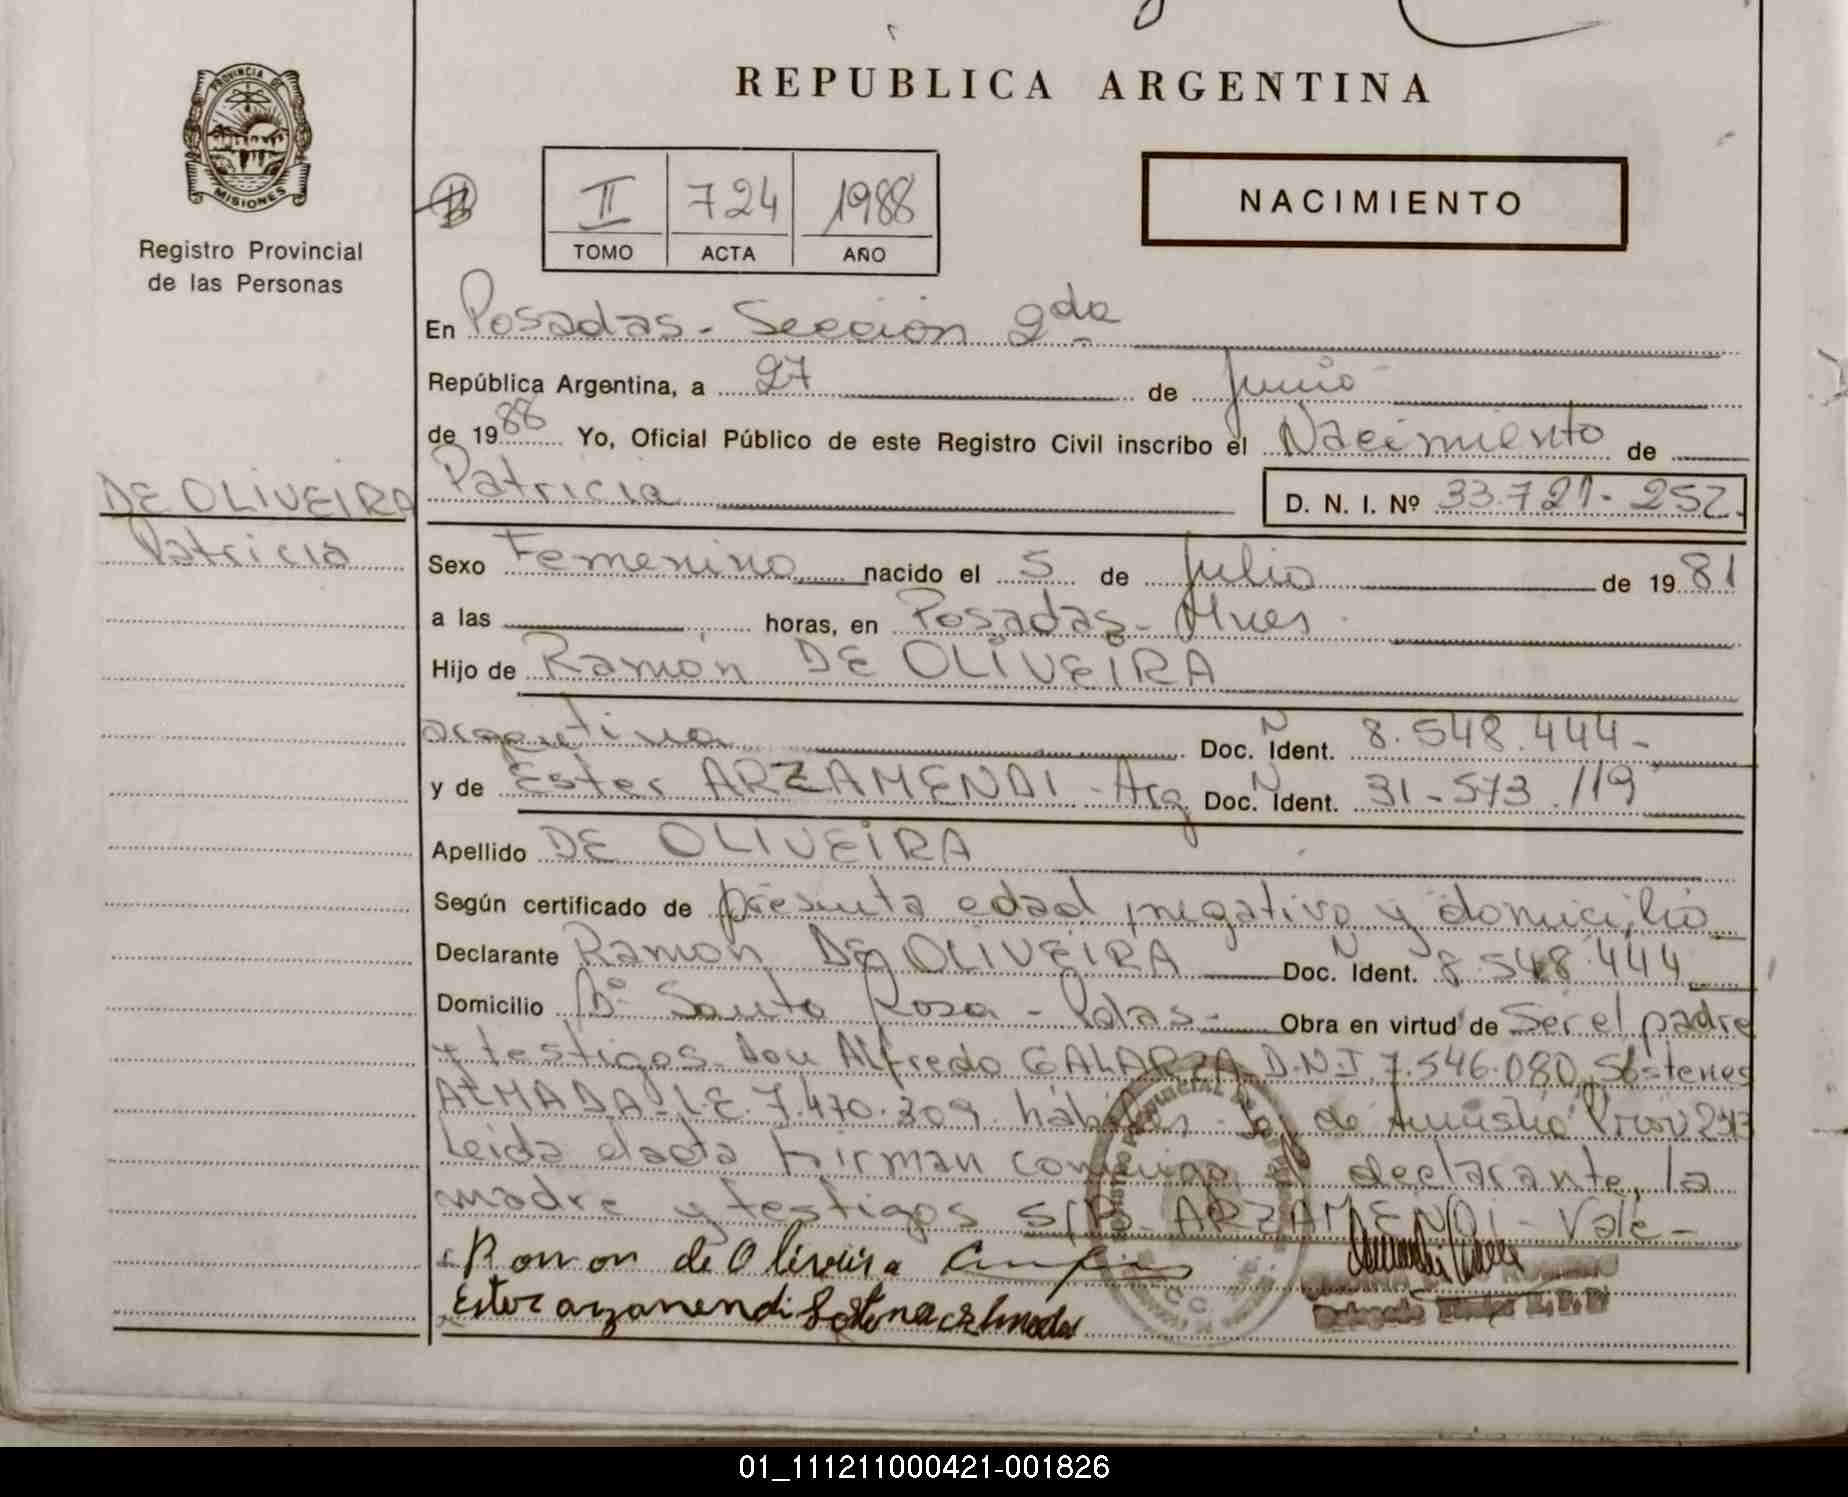 REPUBLICA ARGENTINA
PROVINCIA DE
MISIONES
Registro Provincial
de las Personas
II 724 1988
TOMO ACTA AÑO
NACIMIENTO
En Posadas - Sección 2da
República Argentina, a 27 de Junio
de 1988 Yo, Oficial Público de este Registro Civil inscribo el Nacimiento de
Patricia D. N. I. Nº 33.721-252.
DE OLIVEIRA
Patricia
Sexo Femenino nacido el 5 de Julio de 1981
a las horas, en Posadas - Mnes
Hijo de Ramón DE OLIVEIRA
argentina Doc. Ident. N 8.548.444-
y de Ester ARZAMENDI - Arg Doc. Ident. N 31-573.119
Apellido DE OLIVEIRA
Según certificado de presunta edad, negativo y domicilio
Declarante Ramón DE OLIVEIRA Doc. Ident. N 8.548.444
Domicilio Bº Santa Rosa - Pdas - Obra en virtud de Ser el padre
y testigos Don Alfredo GALARZA D.N.I. 7.546.080, Sóstenes
ALMADA L.E. 7.470.309 hábiles - Ley de Amnistía Prov
Leida el acta firman conmigo el declarante, la
madre y testigos S/R - ARZAMENDI - Vale -
Ramon de Oliveira
Ester arzamendi
01_111211000421-001826